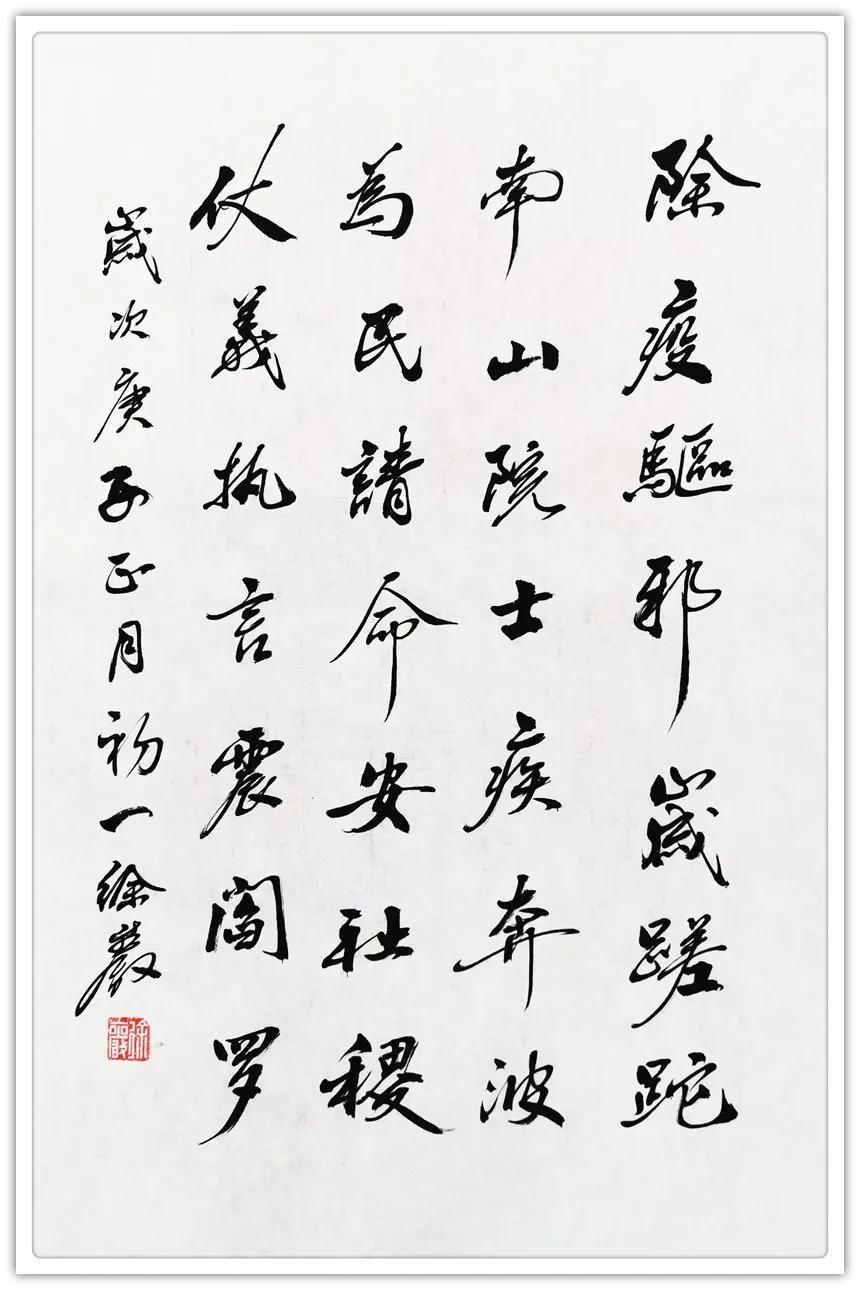 除疫驅邪歲蹉跎
南山院士疾奔波
為民請命安社稷
仗義执言震閻罗
歲次庚子正月初一徐嚴
徐嚴